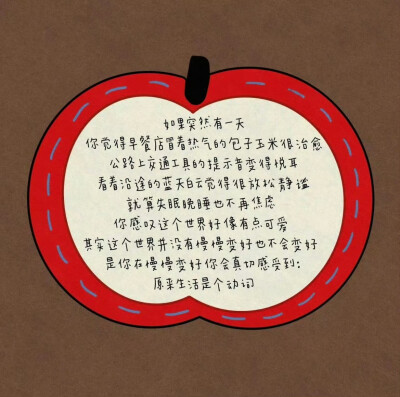 如果突然有一天
你觉得早餐店冒着热气的包子玉米很治愈
公路上交通工具的提示音变得悦耳
看着沿途的蓝天白云觉得很放松静谧
就算失眠晚睡也不再焦虑
你感叹这个世界好像有点可爱
其实这个世界并没有慢慢变好也不会变好
是你在慢慢变好你会真切感受到:
原来生活是个动词